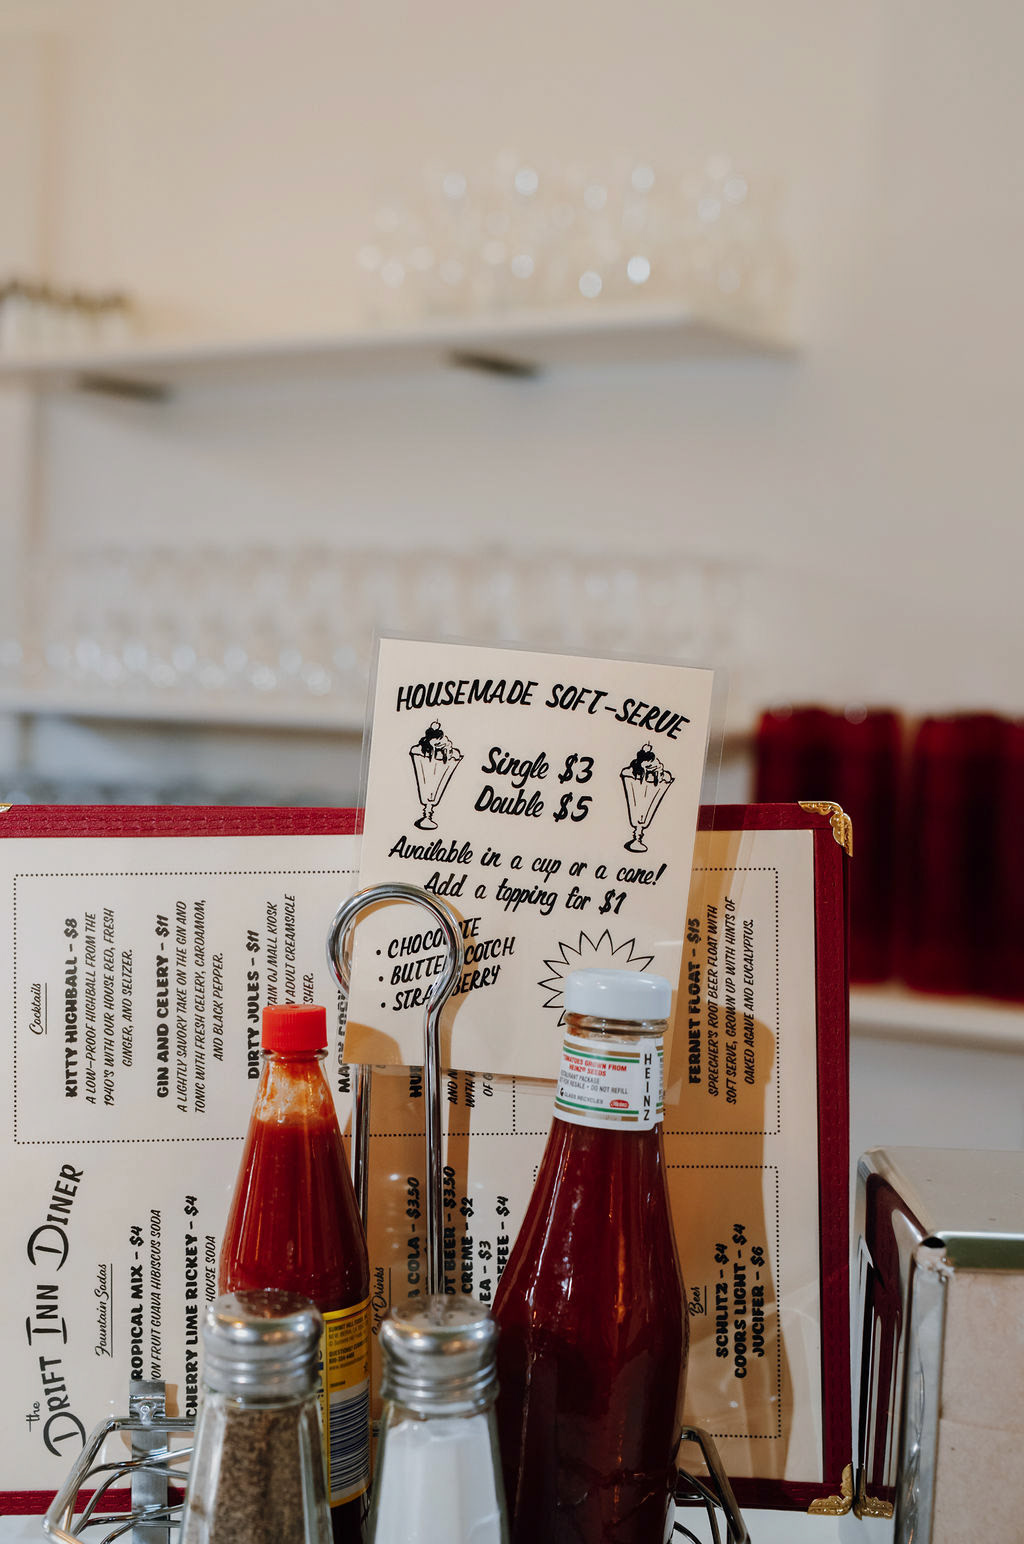 HOUSEMADE SOFT-SERVE
Single $3
Double $5
Available in a cup or a cone!
Add a topping for $1
• CHOCOLATE
• BUTTERSCOTCH
• STRAWBERRY
the
DRIFT INN DINER
Cocktails
KITTY HIGHBALL - $8
A LOW-PROOF HIGHBALL FROM THE
1940'S WITH OUR HOUSE RED, FRESH
GINGER, AND SELTZER.
GIN AND CELERY - $11
A LIGHTLY SAVORY TAKE ON THE GIN AND
TONIC WITH FRESH CELERY, CARDAMOM,
AND BLACK PEPPER.
DIRTY JULES - $11
OJ MALL KIOSK
ADULT CREAMSICLE
FERNET FLOAT - $15
SPRECHER'S ROOT BEER FLOAT WITH
SOFT SERVE, GROWN UP WITH HINTS OF
OAKED AGAVE AND EUCALYPTUS.
Fountain Sodas
ROPICAL MIX - $4
ON FRUIT GUAVA HIBISCUS SODA
CHERRY LIME RICKEY - $4
HOUSE SODA
Drinks
COLA - $3.50
OT BEER - $3.50
CREME - $2
EA - $3
FEE - $4
Beer
SCHLITZ - $4
COORS LIGHT - $4
JUCIFER - $6
TOMATOES GROWN FROM
HEINZ SEEDS
RESTAURANT PACKAGE
NOT FOR RESALE - DO NOT REFILL
GLASS RECYCLES
HEINZ